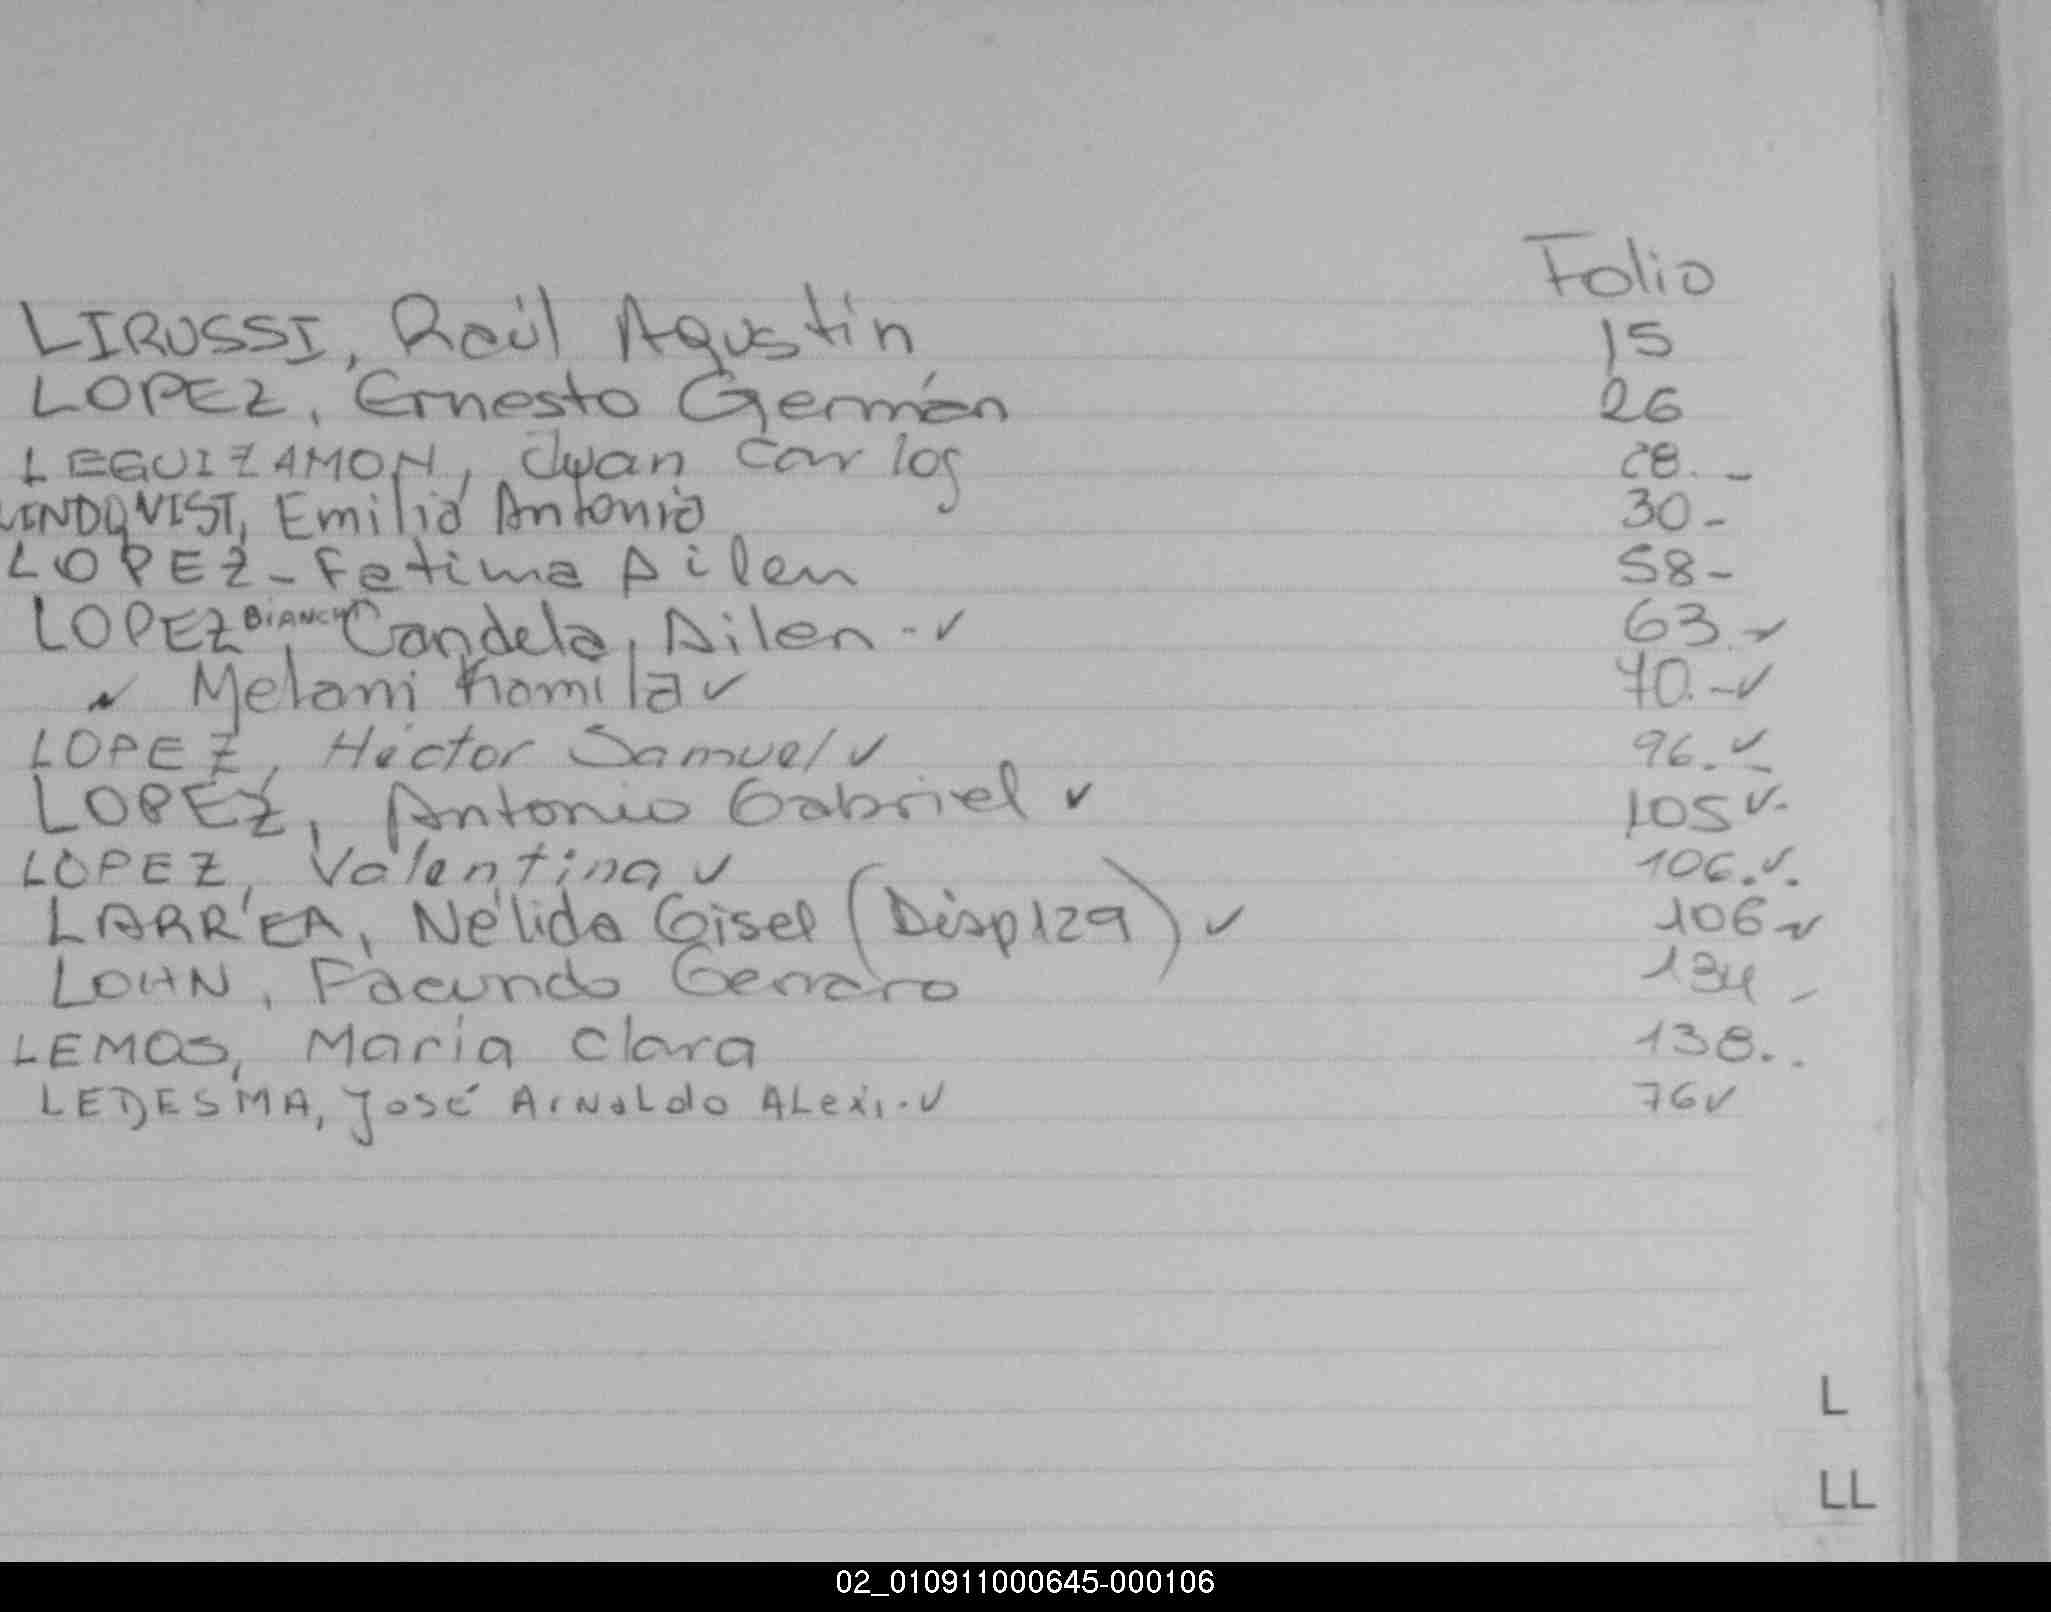 Folio
LIRUSSI, Raúl Agustín 15
LOPEZ, Ernesto Germán 26
LEGUIZAMON, Juan Carlos 28. -
LINDQVIST, Emilio Antonio 30-
LOPEZ - Fatima Ailen 58-
LOPEZ BIANCHI, Candela, Ailen -✓ 63.✓
" Melani Kamila ✓ 70.-✓
LOPEZ, Héctor Samuel ✓ 96.✓-
LOPEZ, Antonio Gabriel ✓ 105 ✓-
LOPEZ, Valentina ✓ 106.✓.
LARR'EA, Nélida Gisel (Disp 129) ✓ 106 ✓
LOHN, Facundo Genaro 134 -
LEMOS, María Clara 138..
LEDESMA, José Arnaldo Alexi.✓ 76✓
L
LL
02_010911000645-000106